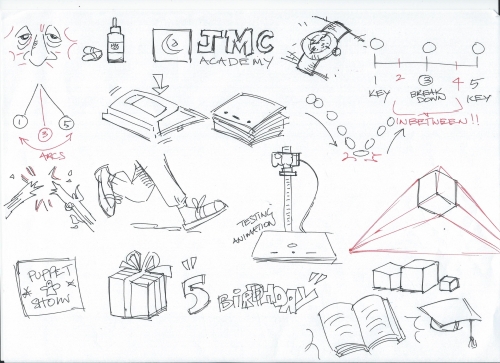 JMC
ACADEMY
1 2 3 4 5
KEY BREAK KEY
DOWN
INBETWEEN!!
1 3 5
ARCS
TESTING
ANIMATION
PUPPET
SHOW
"5 BIRTHDAY"